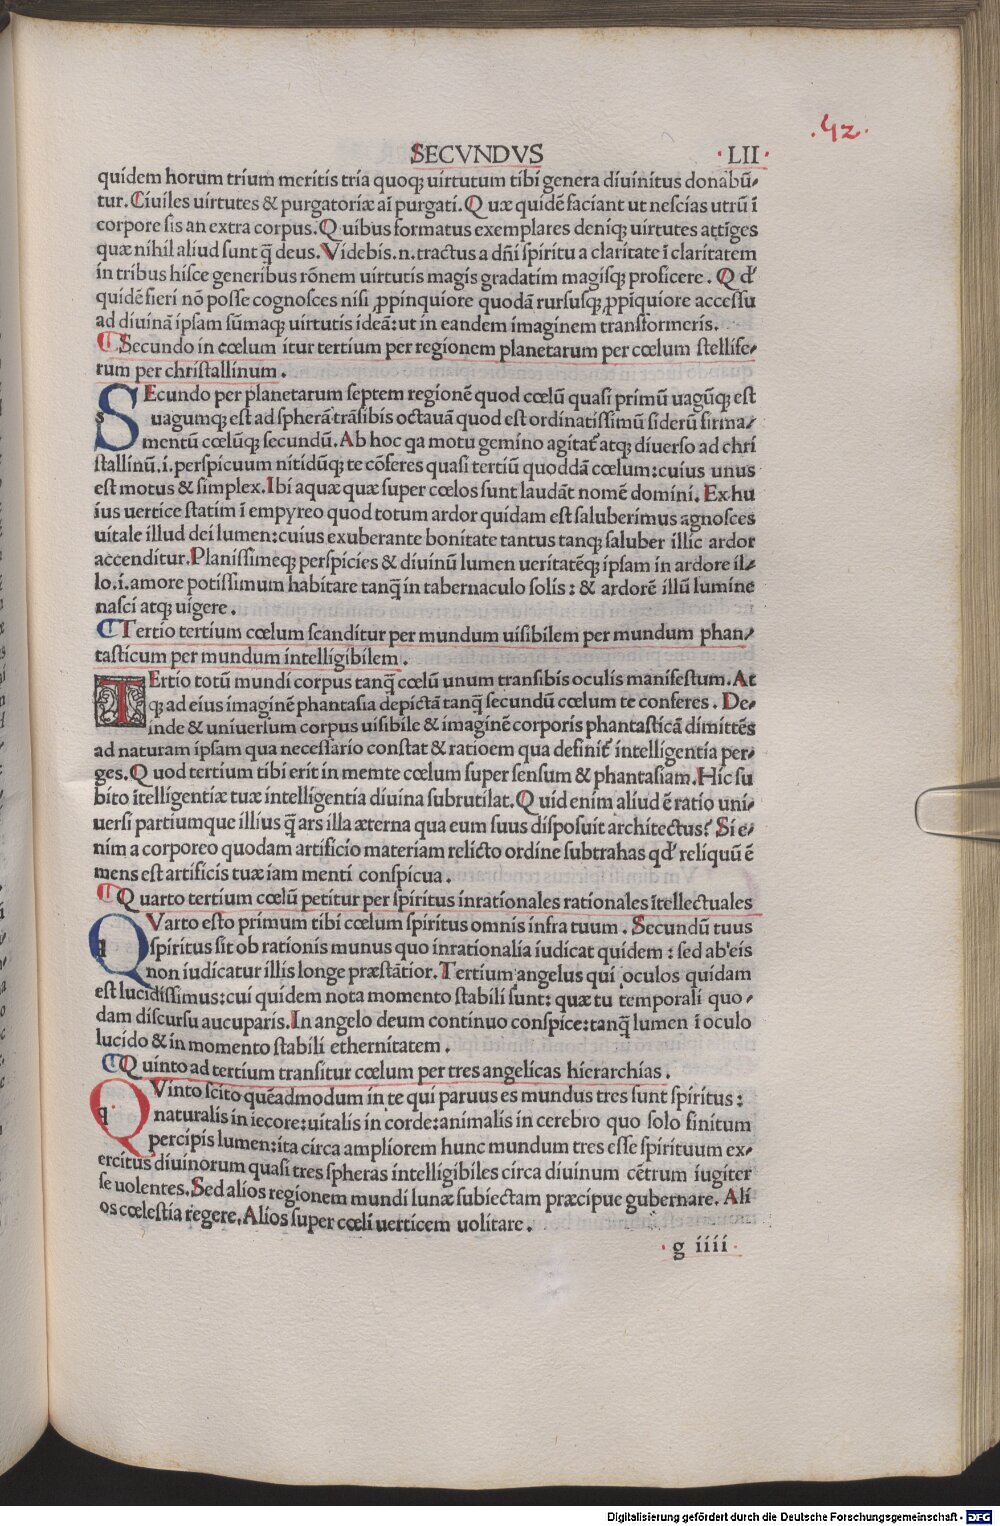 .42.
SECVNDVS
·LII·
quidem horum trium meritis tria quoqꝫ uirtutum tibi genera diuinitus donabū-
tur. Ciuiles uirtutes & purgatoriæ aī purgati. Quæ quidē faciant ut nescias utrū ī
corpore sis an extra corpus. Quibus formatus exemplares deniqꝫ uirtutes attīges
quæ nihil aliud sunt q̄ deus. Videbis .n. tractus a dn̄i spiritu a claritate ī claritatem
in tribus hisce generibus rōnem uirtutis magis gradatim magisqꝫ proficere. Qd'
quidē fieri nō posse cognosces nisi ꝓpinquiore quodā rursusqꝫ ꝓpīquiore accessu
ad diuinā ipsam sūmaqꝫ uirtutis ideā: ut in eandem imaginem transformeris.
¶ Secundo in cœlum itur tertium per regionem planetarum per cœlum stellife-
rum per christallinum.
s
SEcundo per planetarum septem regionē quod cœlū quasi primū uagūqꝫ est
uagumqꝫ est ad spherā trāsibis octauā quod est ordinatissimū siderū firma-
mentū cœlūqꝫ secundū. Ab hoc qa motu gemino agitat᷑ atqꝫ diuerso ad chri
stallinū .i. perspicuum nitidūqꝫ te cōferes quasi tertiū quoddā cœlum: cuius unus
est motus & simplex. Ibi aquæ quæ super cœlos sunt laudāt nomē domini. Ex hu
ius uertice statim ī empyreo quod totum ardor quidam est saluberimus agnosces
uitale illud dei lumen: cuius exuberante bonitate tantus tanqꝫ saluber illic ardor
accenditur. Planissimeqꝫ perspicies & diuinū lumen ueritatēqꝫ ipsam in ardore il-
lo .i. amore potissimum habitare tanq̄ in tabernaculo solis: & ardorē illū lumine
nasci atqꝫ uigere.
¶ Tertio tertium cœlum scanditur per mundum uisibilem per mundum phan-
tasticum per mundum intelligibilem.
TErtio totū mundi corpus tanq̄ cœlū unum transibis oculis manifestum. At
qꝫ ad eius imaginē phantasia depictā tanq̄ secundū cœlum te conferes. De-
inde & uniuersum corpus uisibile & imaginē corporis phantasticā dimittēs
ad naturam ipsam qua necessario constat & ratioem qua definit᷑ intelligentia per-
ges. Quod tertium tibi erit in memte cœlum super sensum & phantasiam. Hic su
bito ītelligentiæ tuæ intelligentia diuina subrutilat. Quid enim aliud ē ratio uni-
uersi partiumque illius q̄ ars illa æterna qua eum suus disposuit architectus? Si e-
nim a corporeo quodam artificio materiam relicto ordine subtrahas qd' reliquū ē
mens est artificis tuæ iam menti conspicua.
¶ Quarto tertium cœlū petitur per spiritus inrationales rationales ītellectuales
q
QVarto esto primum tibi cœlum spiritus omnis infra tuum. Secundū tuus
spiritus sit ob rationis munus quo inrationalia iudicat quidem: sed ab'eis
non iudicatur illis longe præstātior. Tertium angelus qui oculos quidam
est lucidissimus: cui quidem nota momento stabili sunt: quæ tu temporali quo-
dam discursu aucuparis. In angelo deum continuo conspice: tanq̄ lumen ī oculo
lucido & in momento stabili ethernitatem.
¶ Quinto ad tertium transitur cœlum per tres angelicas hierarchias.
q
QVinto scito quēadmodum in te qui paruus es mundus tres sunt spiritus:
naturalis in iecore: uitalis in corde: animalis in cerebro quo solo finitum
percipis lumen: ita circa ampliorem hunc mundum tres esse spirituum ex-
ercitus diuinorum quasi tres spheras intelligibiles circa diuinum cētrum iugiter
se uolentes. Sed alios regionem mundi lunæ subiectam præcipue gubernare. Ali
os cœlestia regere. Alios super cœli uerticem uolitare.
·g iiii·
Digitalisierung gefördert durch die Deutsche Forschungsgemeinschaft - DFG